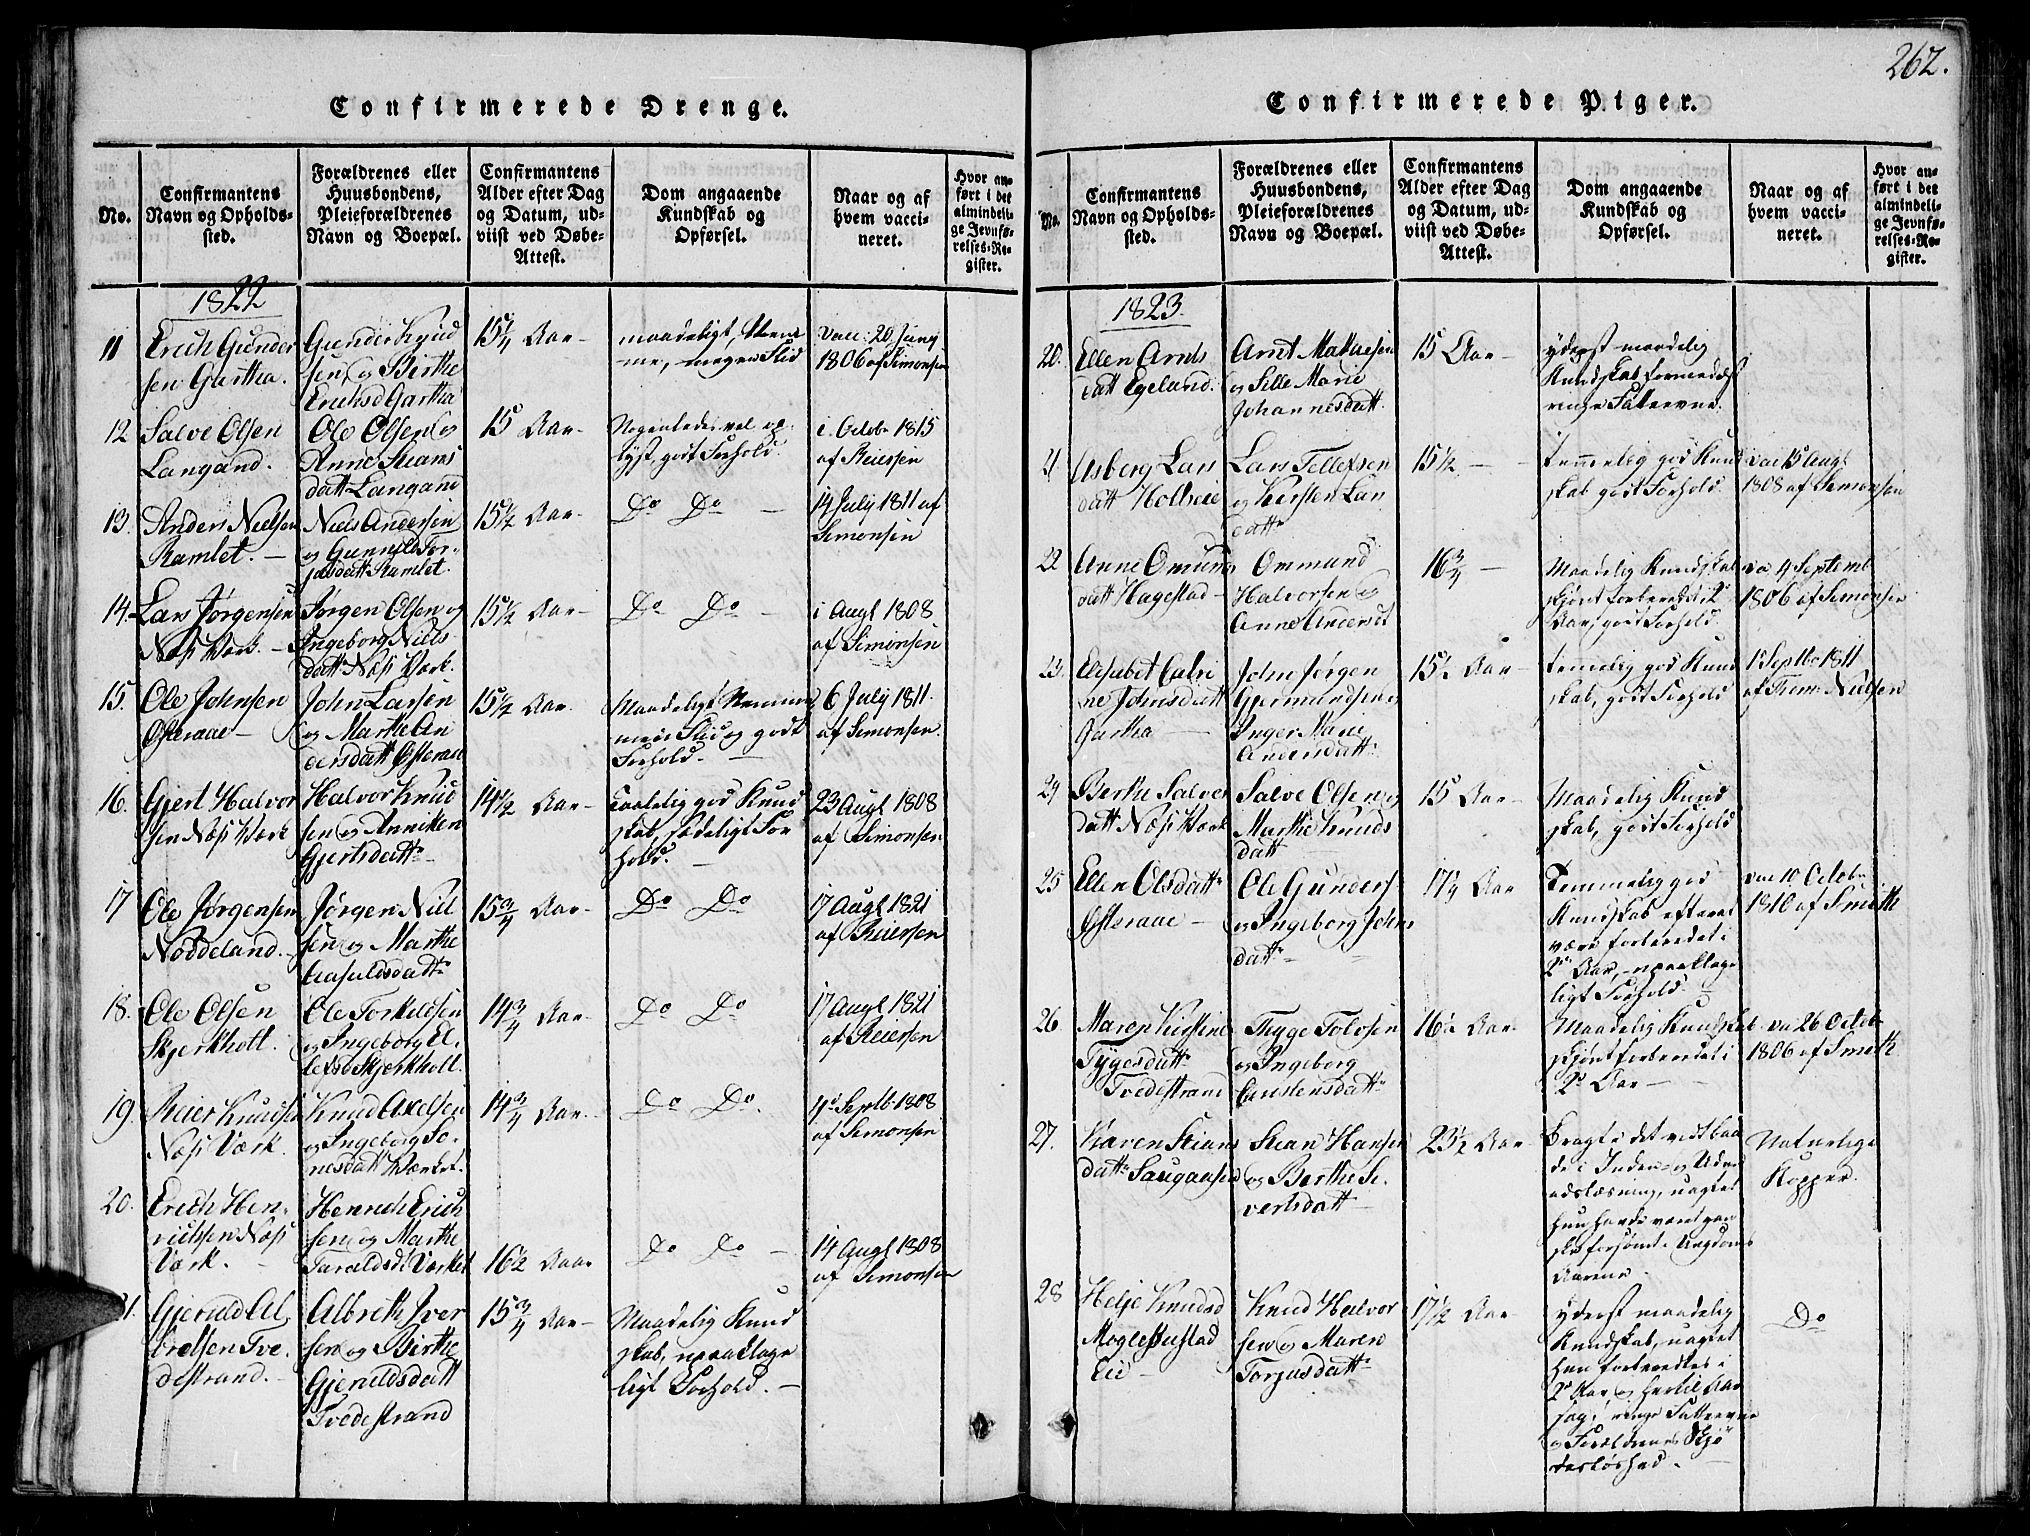 262.
Confirmerede Drenge.
No.
Confirmantens
Navn og Opholds-
sted.
Forældrenes eller
Huusbondens,
Pleieforældrenes
Navn og Boepæl.
Confirmantens
Alder efter Dag
og Datum, ud-
viist ved Døbe-
Attest.
Dom angaaende
Kundskab og
Opførsel.
Naar og af
hvem vacci-
neret.
Hvor an-
ført i det
almindeli-
ge Jevnfø-
relses-Re-
gister.
1822
11
Erich Gunder
sen Gartha.
Gunder Knud
sen og Birthe
Erichsd Gartha
15 1/4 Aar
maadeligt,
Vacc: 20 Juny
1806 af Simonsen
12
Salve Olsen
Langand.
Ole Olsen og
Anne Steans
datt Langand
15 Aar
Nogenledes vel op-
lyst, godt Forhold.
i Octobr 1815
af Reiersen
13.
Anders Nielsen
Ramlet.
Niels Andersen
og Gunnild Tor-
jusdatt Ramlet.
15 1/2 Aar
Do Do
14 July 1811 af
Simonsen
14.
Lars Jørgensen
Næs Værk.
Jørgen Olsen og
Ingeborg Niels
datt Næs Værk.
15 1/2 Aar
Do Do
i Augt 1808
af Simonsen
15.
Ole Johnsen
Østeraae
John Larsen
og Marthe An
dersdatt Østeraae
15 1/2 Aar
Maadeligt Nemme,
meer Flid og godt
Forhold.
6 July 1811.
af Simonsen.
16.
Gjert Halvor
sen Næs Værk
Halvor Knud
sen og Anniken
Gjertsdattr
14 1/2 Aar
Taalelig god Kund
skab, sædeligt For
hold.
23 Augt 1808
af Simonsen
17
Ole Jørgensen
Nøddeland.
Jørgen Niel
sen og Marthe
15 3/4 Aar
Do Do
17 Augt 1821
af Reiersen
18.
Ole Olsen
Skjerkholt.
Ole Torkildsen
og Ingeborg El-
lefsd Skjerkholt.
14 3/4 Aar
Do Do
17 Augt 1821
af Reiersen
19.
Reier Knudsen
Næs Værk.
Knud Axelsen
og Ingeborg To-
nesdatt Værket.
14 3/4 Aar
Do Do.
4de Septb. 1808
af Simonsen
20.
Erich Hen-
richsen Næs
Værk.
Henrich Erich
sen og Marthe
Taraldsdr Værket
16 1/2 Aar
Do Do
14 Augt 1808
af Simonsen
21.
Gjeruld Al
bretsen Tve-
destrand.
Albreth Iver
sen og Birthe
Gjeruldsdatt
Tvedestrand
15 3/4 Aar
Maadelig Kund
skab, upaaklage
ligt Forhold.
Confirmerede Piger.
No.
Confirmantens
Navn og Opholds-
sted.
Forældrenes eller
Huusbondens,
Pleieforældrenes
Navn og Boepæl.
Confirmantens
Alder efter Dag
og Datum, ud-
viist ved Døbe-
Attest.
Dom angaaende
Kundskab og
Opførsel.
Naar og af
hvem vacci-
neret.
Hvor an-
ført i det
almindeli-
ge Jevnfø-
relses-Re-
gister.
1823.
20.
Ellen Arnts
datt Egeland.
Arnt Mathiesen
og Sille Marie
Johannesdatt.
15 Aar
yderst maadelig
Kundskab formedelst
ringe Fatteevne.
21
Asberg Lars
datt Holtheie
Lars Tellefsen
og Kirsten Lars
dattr
15 1/2
temmelig god Kund
skab godt Forhold.
vac 15 Augt
1808 af Simonsen
22
Anne Omunds
datt Hagestad
Ommund
Halvorsen og
Anne Andersdt
16 3/4
Maadelig Kundskab
skjønt forberedt i 2de
Aar, godt Forhold.
va 4 Septemb
1806 af Simonsen
23.
Elisabet Cathri
ne Johnsdatt
Gartha
John Jørgen
Gjermundsen og
Inger Marie
Andersdattr
15 1/2 Aar
temelig god Kund
skab, godt Forhold
1 Septbr 1811
af Nielsen
24
Berthe Salves
datt Næs Værk
Salve Olsen og
Marthe Knuds
datt
15 Aar
Maadelig Kund
skab, godt Forhold
25
Ellen Olsdattr
Østeraae
Ole Gunders
og Ingeborg Johns
dattr
17 1/2 Aar
Temmelig god
Kundskab efter at
være forberedet i
2de Aar, upaaklage
ligt Forhold.
vac 10 Octobr
1810 af Smith
26
Maren Kirstine
Tygesdattr
Tvedestrand
Thyge Tolvsen
og Ingeborg
Carstensdattr
16 1/2 Aar
Maadelig Kundskab
skjønt forberedet i
2de Aar
va 26 Octobr
1806 af Smith
27.
Karen Steans
dattr
Stean Hansen
og Berthe Si-
vertsdatt
23 1/2 Aar
Bragte det vidt baa
de i Inden- og Uden
adslæsning, uagtet
hun havde været gan
ske forsømt i Ungdoms
Aarene.
Naturlige
Kopper.
28
Helje Knudsd
Moglestustad
Eie
Knud Halvor
sen og Maren
Torjusdattr
17 1/2 Aar
yderst maadelig
Kundskab, uagtet
hun forberedtes i
2de Aar og
ringe Fatteevne
og Forældrenes Skjø
desløshed.
Do